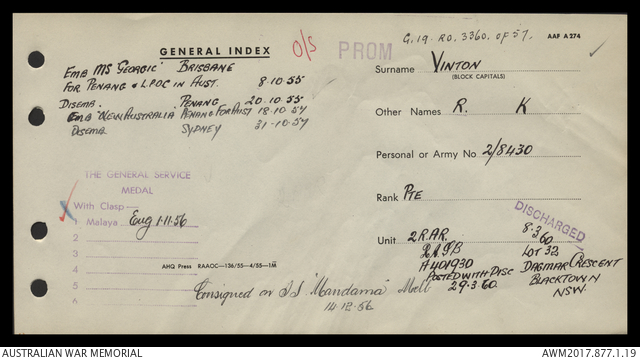 GENERAL INDEX
O/S
PROM
G.19. RO. 3360. of 57.
AAF A 274
EMB MS 'GEORGIC' BRISBANE
FOR PENANG & LPOC IN AUST. 8·10·55
DISEMB. PENANG 20·10·55
EMB 'NEW AUSTRALIA' PENANG FOR AUST 18·10·57
DISEMB SYDNEY 31·10·57
Surname VINTON
(BLOCK CAPITALS)
Other Names R. K
Personal or Army No 2/8430
Rank PTE
Unit 2 R.A.R.
DISCHARGED
8·3·60
A401930
POSTED WITH DISC
29·3·60.
LOT 32
DAGMAR CRESCENT
BLACKTOWN
NSW.
THE GENERAL SERVICE
MEDAL
With Clasp—
1 Malaya Eng 1·11·56
2
3
4
5
6
AHQ Press RAAOC—136/55—4/55—1M
Consigned on S.S 'Mandama' Melb
14·12·56
AUSTRALIAN WAR MEMORIAL
AWM2017.877.1.19